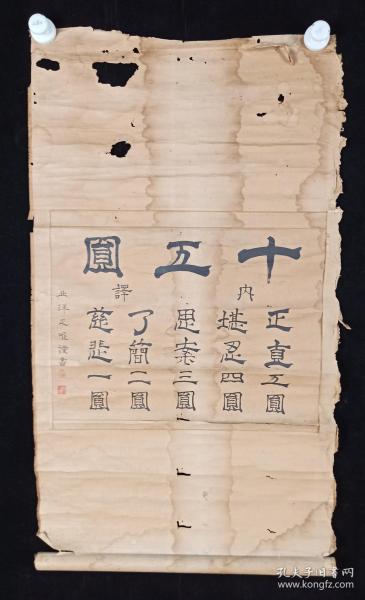 十五圓
内譯
正直五圓
堪忍四圓
思案三圓
了簡二圓
慈悲一圓
孔夫子旧书网
www.kongfz.com